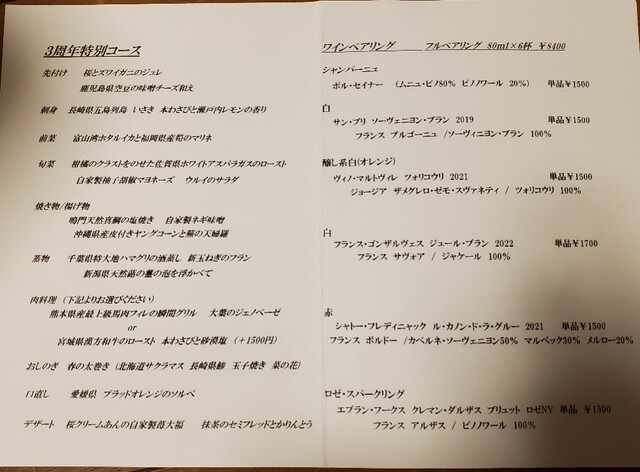 3周年特別コース
先付け 桜とズワイガニのジュレ
鹿児島県空豆の味噌チーズ和え
刺身 長崎県五島列島 いさき 本わさびと瀬戸内レモンの香り
前菜 富山湾ホタルイカと福岡県産筍のマリネ
旬菜 柑橘のクラストをのせた佐賀県ホワイトアスパラガスのロースト
自家製柚子胡椒マヨネーズ ウルイのサラダ
焼き物/揚げ物
鳴門天然真鯛の塩焼き 自家製ネギ味噌
沖縄県産皮付きヤングコーンと蕪の天婦羅
蒸物 千葉県特大地ハマグリの酒蒸し 新玉ねぎのフラン
新潟県天然蕗の薹の泡を浮かべて
肉料理 (下記よりお選びください)
熊本県産最上級馬肉フィレの瞬間グリル 大葉のジェノベーゼ
or
宮城県漢方和牛のロースト 本わさびと砂漠塩 (+1500円)
おしのぎ 春の太巻き (北海道サクラマス 長崎県鯵 玉子焼き 菜の花)
口直し 愛媛県 ブラッドオレンジのソルベ
デザート 桜クリームあんの自家製苺大福 抹茶のセミフレッドとかりんとう
ワインペアリング フルペアリング 80ml×6杯 ¥8400
シャンパーニュ
ポル・セイナー (ムニュ・ピノ80% ピノワール 20%) 単品¥1500
白
サン・ブリ ソーヴェニヨン・ブラン 2019 単品¥1500
フランス ブルゴーニュ /ソーヴィニヨン・ブラン 100%
醸し系白(オレンジ)
ヴィノ・マルトヴィレ ツォリコウリ 2021 単品¥1500
ジョージア ザメグレロ・ゼモ・スヴァネティ / ツォリコウリ 100%
白
フランス・ゴンザルヴェス ジュール・ブラン 2022 単品¥1700
フランス サヴォア / ジャケール 100%
赤
シャトー・フレディニャック ル・カノン・ド・ラ・グルー 2021 単品¥1500
フランス ボルドー /カベルネ・ソーヴェニヨン50% マルベック30% メルロー20%
ロゼ・スパークリング
エブラン・フークス クレマン・ダルザス ブリュット ロゼNV 単品 ¥1500
フランス アルザス / ピノワール 100%